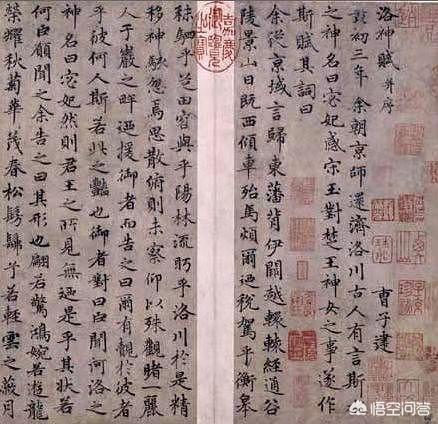 洛神賦 并序
曹子建
黃初三年余朝京師還濟洛川古人有言斯
之神名曰宓妃感宋玉對楚王神女之事遂作
斯賦其詞曰
余從京域言歸東藩背伊闕越轘轅經通谷
陵景山日既西傾車殆馬煩爾迺稅駕乎衡皋
秣駟乎芝田容與乎陽林流眄乎洛川於是精
移神駭忽焉思散俯則未察仰以殊觀睹一麗
人于巖之畔迺援御者而告之曰爾有覿於彼者
乎彼何人斯若此之豔也御者對曰臣聞河洛之
神名曰宓妃然則君王之所見無迺是乎其狀若
何臣願聞之余告之曰其形也翩若驚鴻婉若遊龍
榮耀秋菊華茂春松髣髴兮若輕雲之蔽月
嘉慶御覽之寶
悟空问答